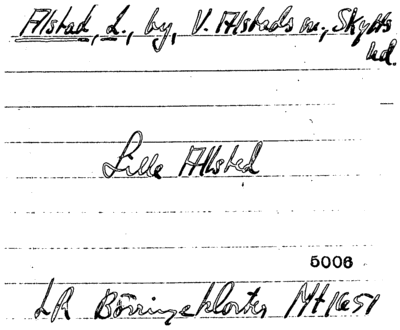 Alstad, L., by, V. Alstads sn., Skytts
hd.
Lille Allsted
5006
LR Börringekloster Mt 1651